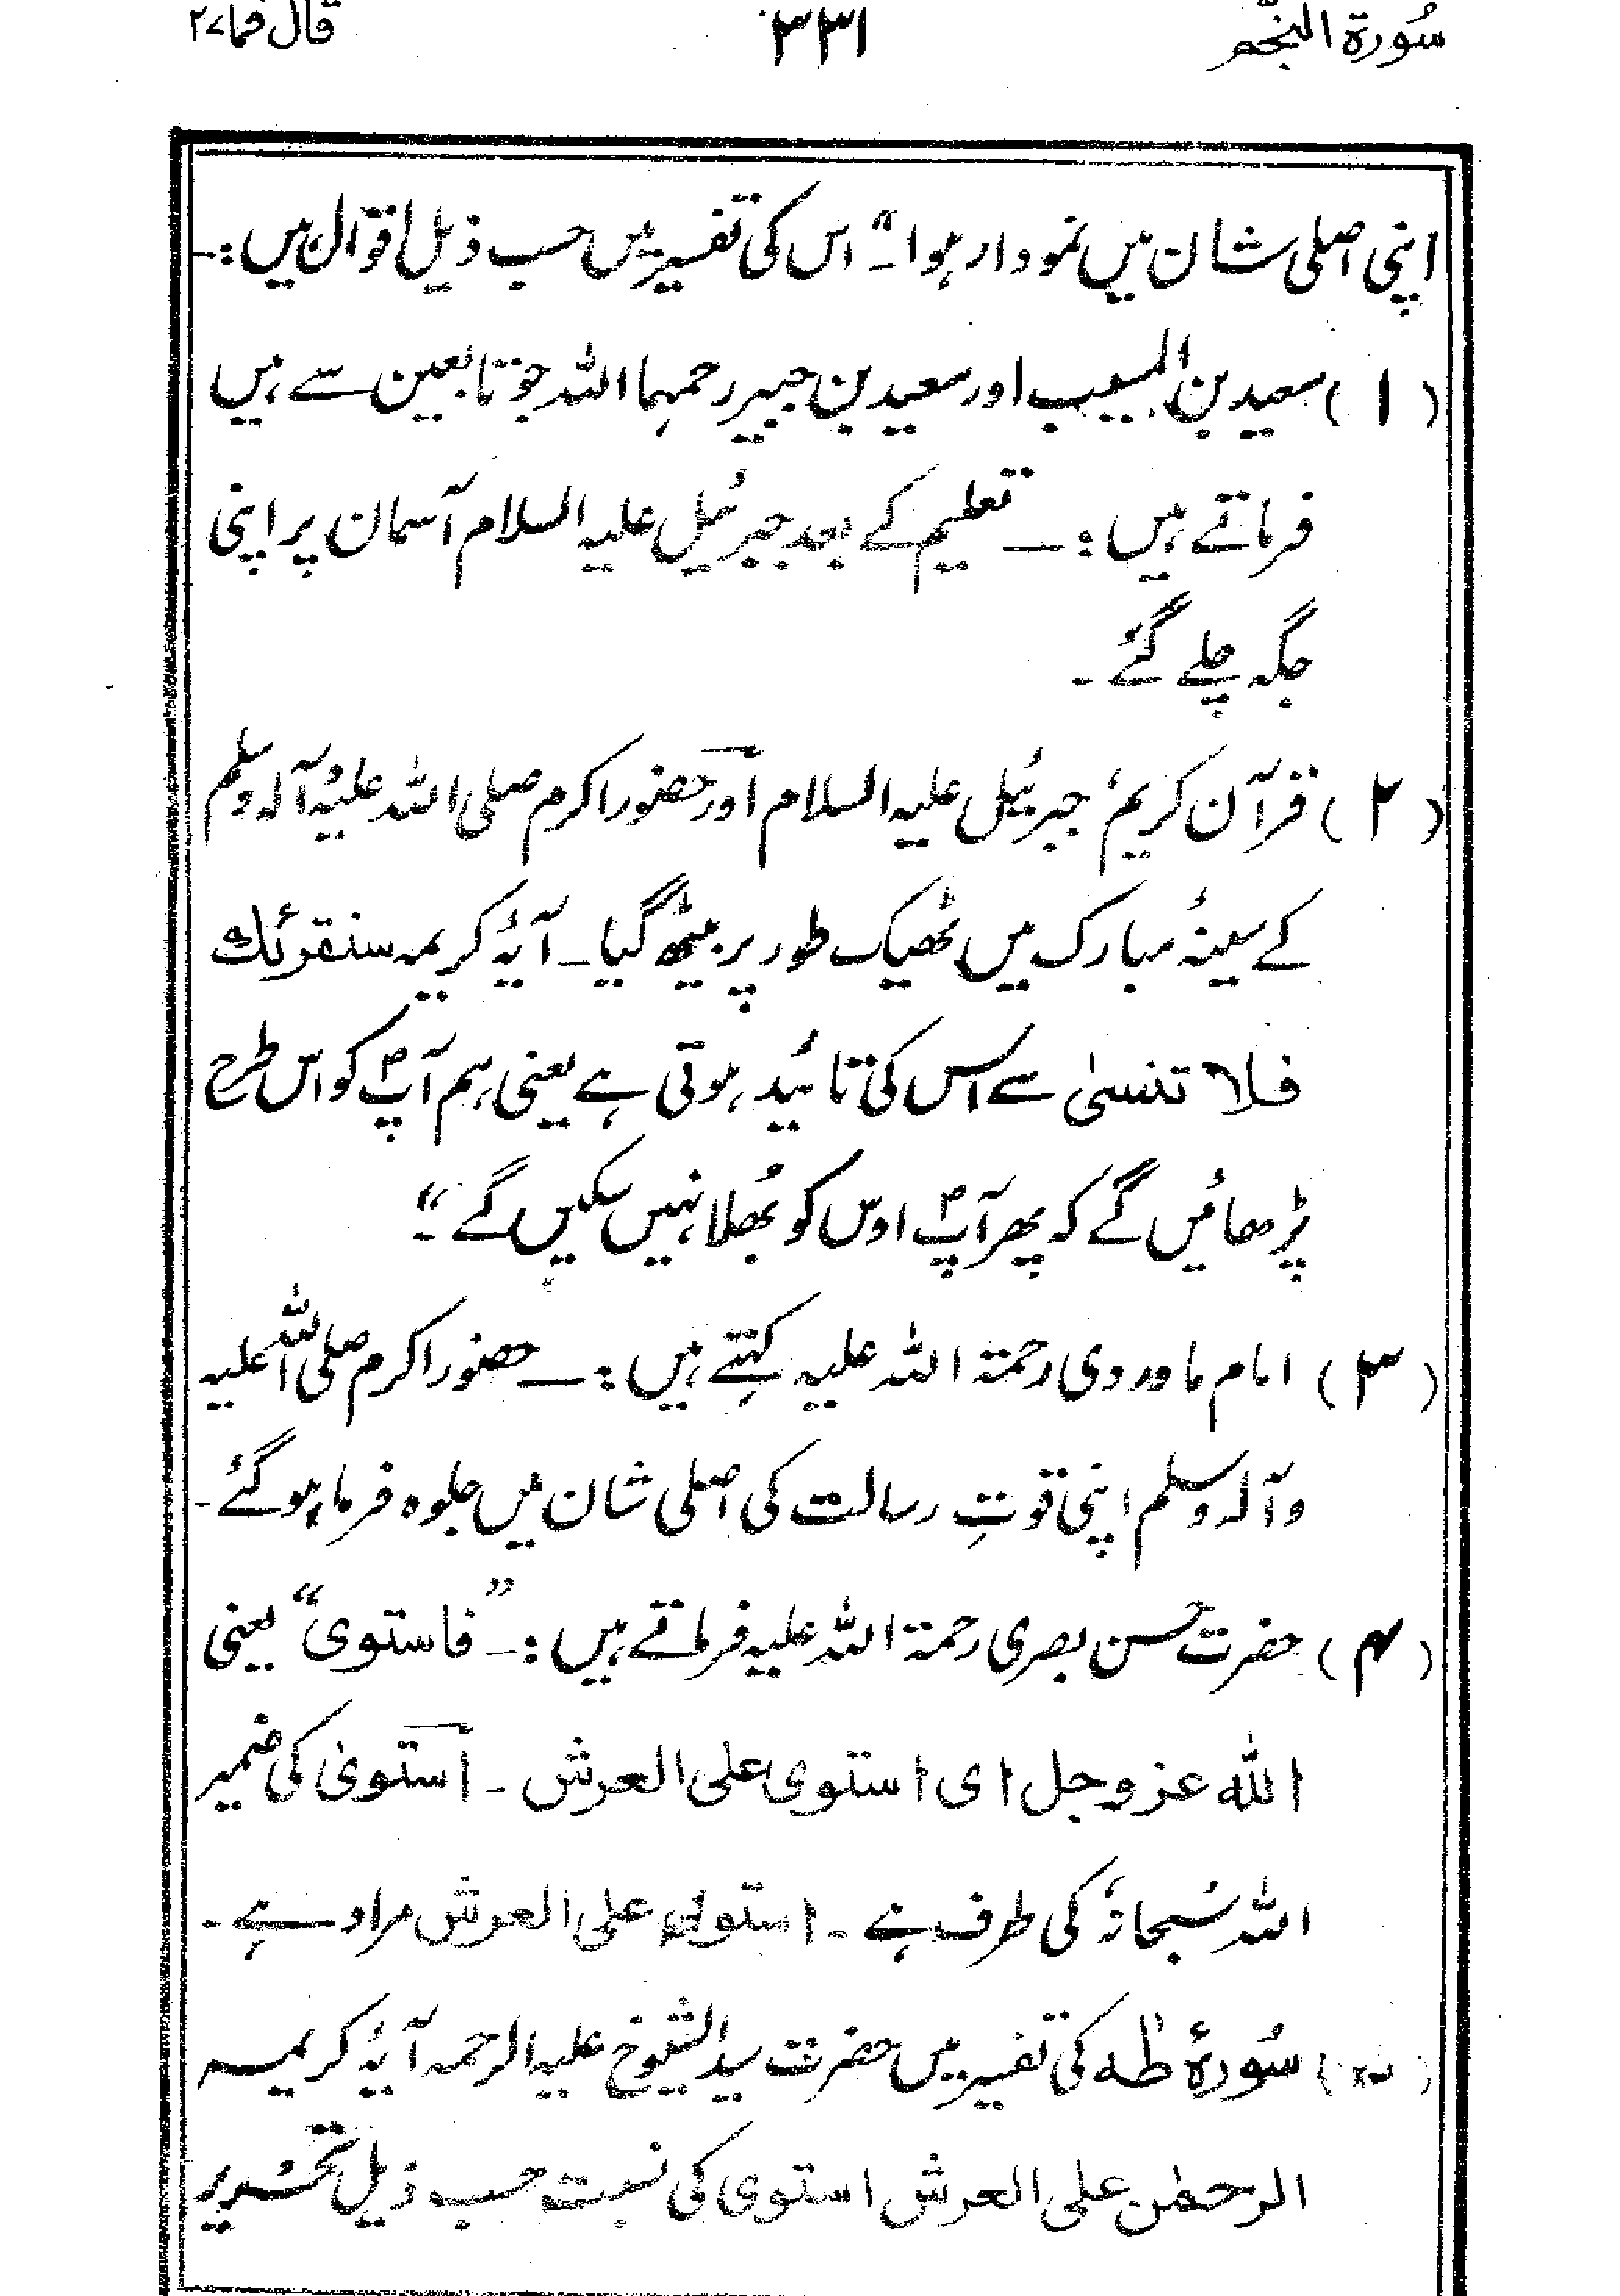 سُورۃ النجم ۳۳۱ قال فما ۲۷
اپنی اصلی شان میں نمودار ہوا۔" اس کی تفسیر میں حسب ذیل اقوال ہیں:۔
(۱) سعید بن المسیب اور سعید بن جبیر رحمہما اللہ جو تابعین سے ہیں
فرماتے ہیں:۔ تعلیم کے بعد جبرئیل علیہ السلام آسمان پر اپنی
جگہ چلے گئے۔
(۲) قرآن کریم، جبرئیل علیہ السلام اور حضور اکرم صلی اللہ علیہ وآلہ وسلم
کے سینۂ مبارک میں ٹھیک طور پر بیٹھ گیا۔ آیۂ کریمہ سنقرئك
فلا تنسیٰ سے اس کی تائید ہوتی ہے یعنی ہم آپؐ کو اس طرح
پڑھائیں گے کہ پھر آپؐ اوس کو بھُلا نہیں سکیں گے۔"
(۳) امام ماوردی رحمۃ اللہ علیہ کہتے ہیں:۔ حضور اکرم صلی اللہ علیہ
وآلہ وسلم اپنی قوتِ رسالت کی اصلی شان میں جلوہ فرما ہو گئے۔
(۴) حضرت حسن بصری رحمۃ اللہ علیہ فرماتے ہیں:۔ "فاستوی" یعنی
اللہ عزوجل ای استوی علی العرش۔ استویٰ کی ضمیر
اللہ سُبحانہٗ کی طرف ہے۔ استواء علی العرش مراد ہے۔
(۵) سُورۂ طٰہٰ کی تفسیر میں حضرت سید الشیوخ علیہ الرحمہ آیۂ کریمہ
الرحمٰن علی العرش استوی کی نسبت حسب ذیل تحریر